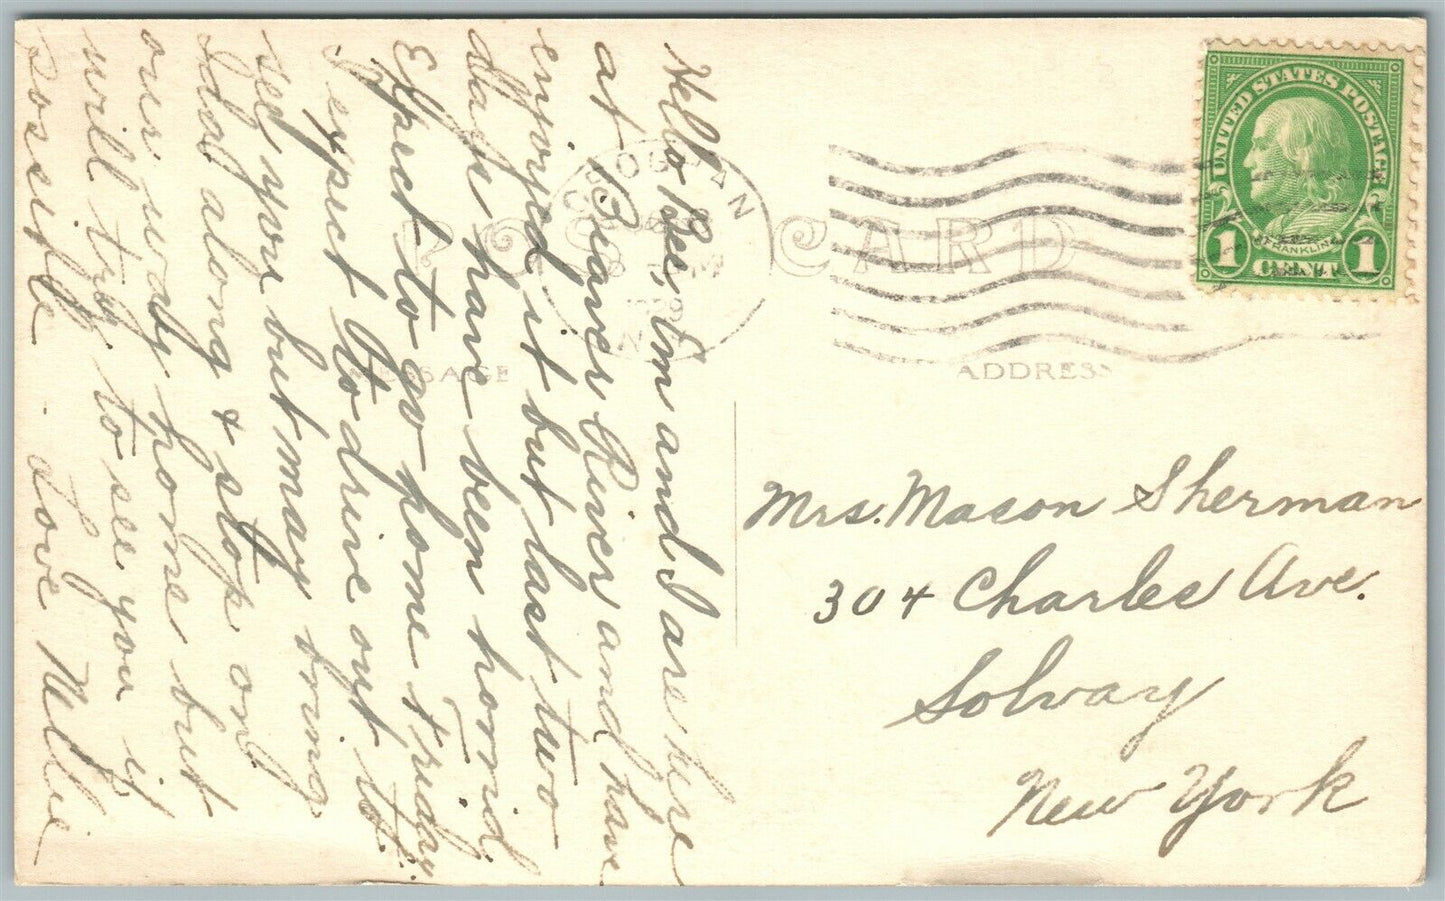 Hello Bee, Em and I are here
at Beaver River and have
enjoyed it but last two
days have been horrid
Expect to go home Friday
I expect Ito drive out to
see you but may bring
Ida along & stop on
our way home but
will try to see you if
possible. Love Nellie
CROGHAN
N.Y.
POST CARD
MESSAGE
ADDRESS
UNITED STATES POSTAGE
FRANKLIN
1 CENT 1
Mrs. Mason Sherman
304 Charles Ave.
Solvay
New York